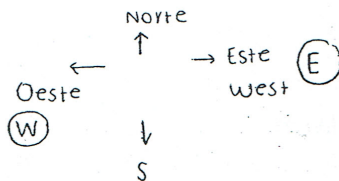 Norte
Este E
Oeste West
W
S